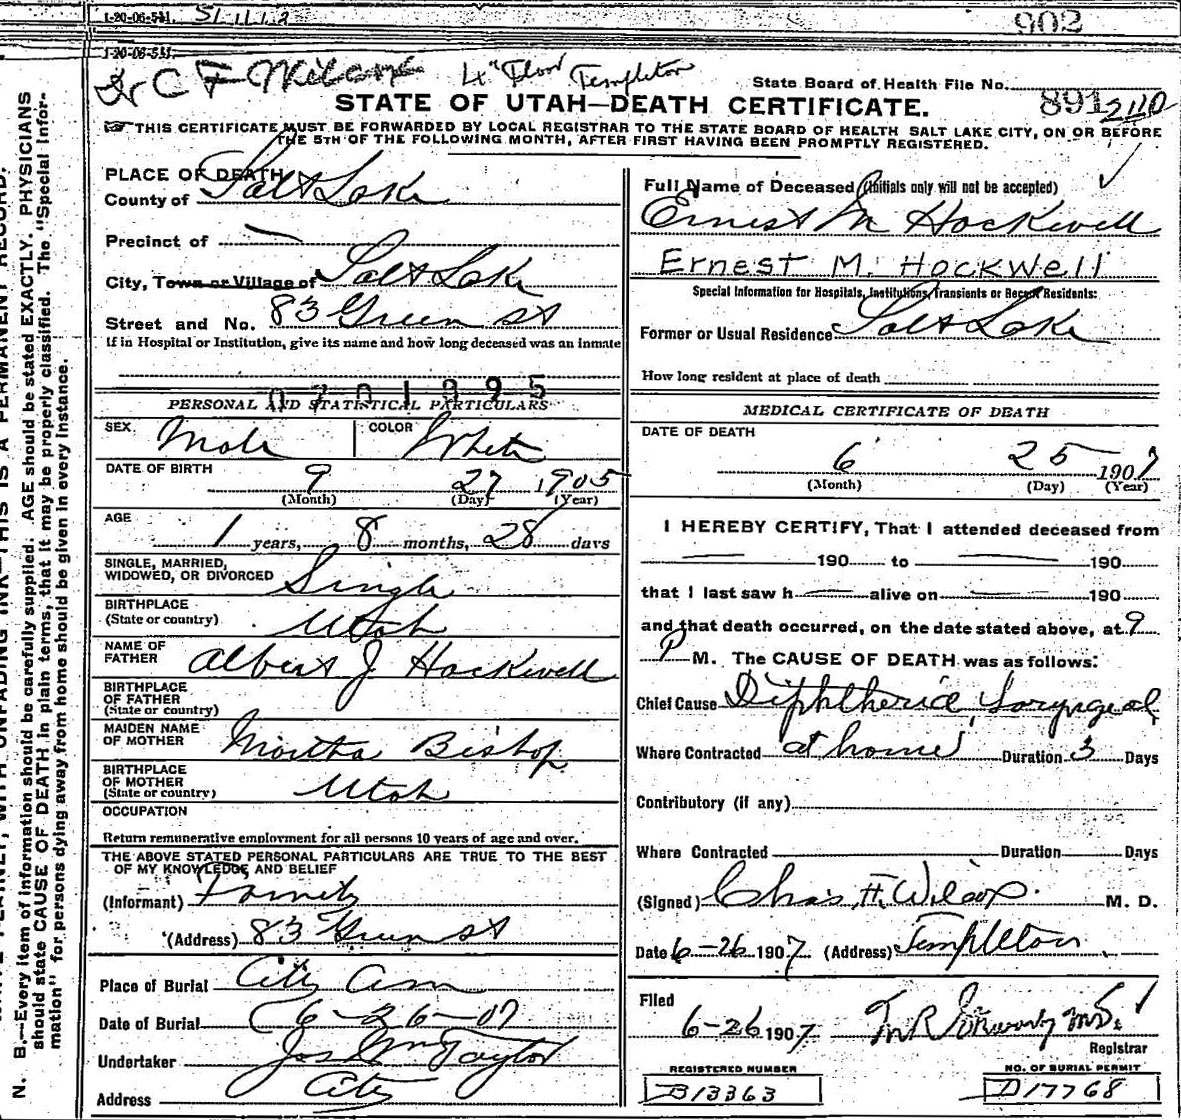 1-20-06-5M. 51112
902
1-20-06-5M.
Dr C F Wilcox 4" Floor Templeton
State Board of Health File No.
891 240
STATE OF UTAH—DEATH CERTIFICATE.
THIS CERTIFICATE MUST BE FORWARDED BY LOCAL REGISTRAR TO THE STATE BOARD OF HEALTH SALT LAKE CITY, ON OR BEFORE
THE 5TH OF THE FOLLOWING MONTH, AFTER FIRST HAVING BEEN PROMPTLY REGISTERED.
PLACE OF DEATH
County of Salt Lake
Precinct of —
City, Town or Village of Salt Lake
Street and No. 83 Green st
If in Hospital or Institution, give its name and how long deceased was an inmate
0701895
PERSONAL AND STATISTICAL PARTICULARS
SEX Male COLOR White
DATE OF BIRTH 9 27 1905
(Month) (Day) (Year)
AGE 1 years, 8 months, 28 days
SINGLE, MARRIED,
WIDOWED, OR DIVORCED Single
BIRTHPLACE
(State or country) Utah
NAME OF
FATHER Albert J Hockwell
BIRTHPLACE
OF FATHER
(State or country)
MAIDEN NAME
OF MOTHER Martha Bishop
BIRTHPLACE
OF MOTHER
(State or country) Utah
OCCUPATION
Return remunerative employment for all persons 10 years of age and over.
THE ABOVE STATED PERSONAL PARTICULARS ARE TRUE TO THE BEST
OF MY KNOWLEDGE AND BELIEF
(Informant) Family
(Address) 83 Green st
Place of Burial City Cem
Date of Burial 6-26-07
Undertaker Jos Wm Taylor
Address City
Full Name of Deceased (Initials only will not be accepted)
Ernest M Hockwell
Ernest M. Hockwell
Special Information for Hospitals, Institutions, Transients or Recent Residents:
Former or Usual Residence Salt Lake
How long resident at place of death
MEDICAL CERTIFICATE OF DEATH
DATE OF DEATH
6 25 1907
(Month) (Day) (Year)
I HEREBY CERTIFY, That I attended deceased from
— 190 to — 190
that I last saw h — alive on — 190
and that death occurred, on the date stated above, at 9
P M. The CAUSE OF DEATH was as follows:
Chief Cause Diphtheria, Laryngeal
Where Contracted at home Duration 3 Days
Contributory (if any)
Where Contracted Duration Days
(Signed) Chas. F. Wilcox M. D.
Date 6-26 1907 (Address) Templeton
Filed
6-26 1907
Registrar
REGISTERED NUMBER
B13363
NO. OF BURIAL PERMIT
D17768
N. B.—Every item of information should be carefully supplied. AGE should be stated EXACTLY. PHYSICIANS
should state CAUSE OF DEATH in plain terms, that it may be properly classified. The "Special Infor-
mation" for persons dying away from home should be given in every instance.